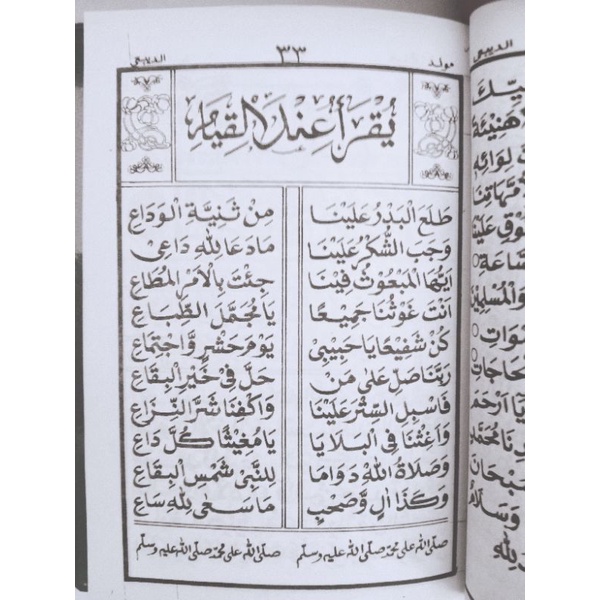 مولد ٣٣ الديبعي
يُقْرَأُ عِنْدَ الْقِيَامِ
طَلَعَ الْبَدْرُ عَلَيْنَا مِنْ ثَنِيَّةِ الْوَدَاعِ
وَجَبَ الشُّكْرُ عَلَيْنَا مَا دَعَا لِلّٰهِ دَاعِى
اَيُّهَا الْمَبْعُوْثُ فِيْنَا جِئْتَ بِالْاَمْرِ الْمُطَاعِ
اَنْتَ غَوْثُنَا جَمِيْعًا يَا مُجَمَّلَ الطِّبَاعِ
كُنْ شَفِيْعًا يَا حَبِيْبِىْ يَوْمَ حَشْرٍ وَّاجْتِمَاعِ
رَبَّنَا صَلِّ عَلٰى مَنْ حَلَّ فِىْ خَيْرِ الْبِقَاعِ
فَاسْبِلِ السِّتْرَ عَلَيْنَا وَاكْفِنَا شَرَّ النِّزَاعِ
وَاَغِثْنَا فِى الْبَلَايَا يَا مُغِيْثًا كُلَّ دَاعِ
وَصَلَاةُ اللّٰهِ دَوَامًا لِلنَّبِىْ شَمْسِ الْبِقَاعِ
وَكَذَا اٰلٍ وَّصَحْبٍ مَا سَعٰى لِلّٰهِ سَاعِ
صَلَّى اللهُ عَلٰى مُحَمَّدْ صَلَّى اللهُ عَلَيْهِ وَسَلَّمْ صَلَّى اللهُ عَلٰى مُحَمَّدْ صَلَّى اللهُ عَلَيْهِ وَسَلَّمْ
الديبعى